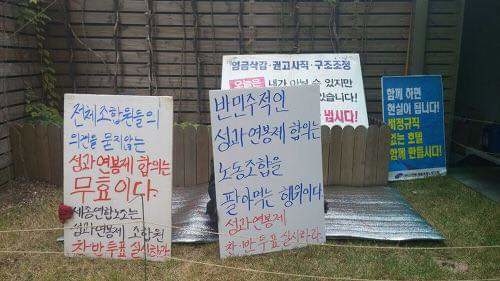 전체조합원들의
의견을 묻지않는
성과연봉제 합의는
무효이다.
세종연합모모는
성과연봉제 조합원
찬·반투표 실시하라
반민주적인
성과연봉제 합의는
노동조합을
팔아먹는 행위이다
성과연봉제
찬·반투표 실시하라.
임금삭감·권고사직·구조조정
오늘은 내가 아닐 수 있지만
있습니다!
넙시다!
함께 하면
현실이 됩니다!
비정규직
없는 호텔
함께 만듭시다!